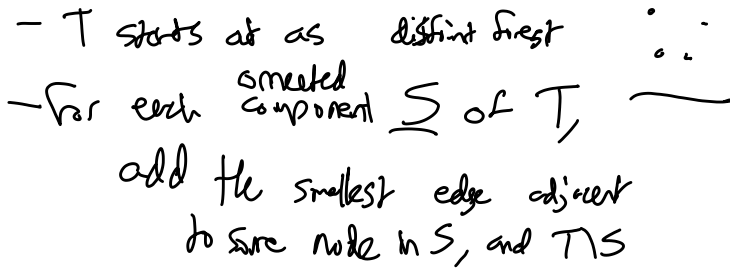 - T starts at as distint forest
- For each connected component S of T,
add the smallest edge adjacent
to some node in S, and T\S